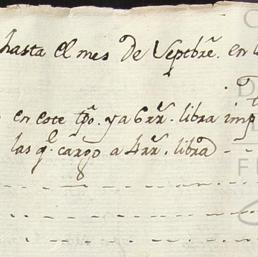 hasta el mes de Septbrẽ. en l
en este tpõ. y a 6 rr̃. libra imp
las q̃. cargo a 4 rr̃. libra